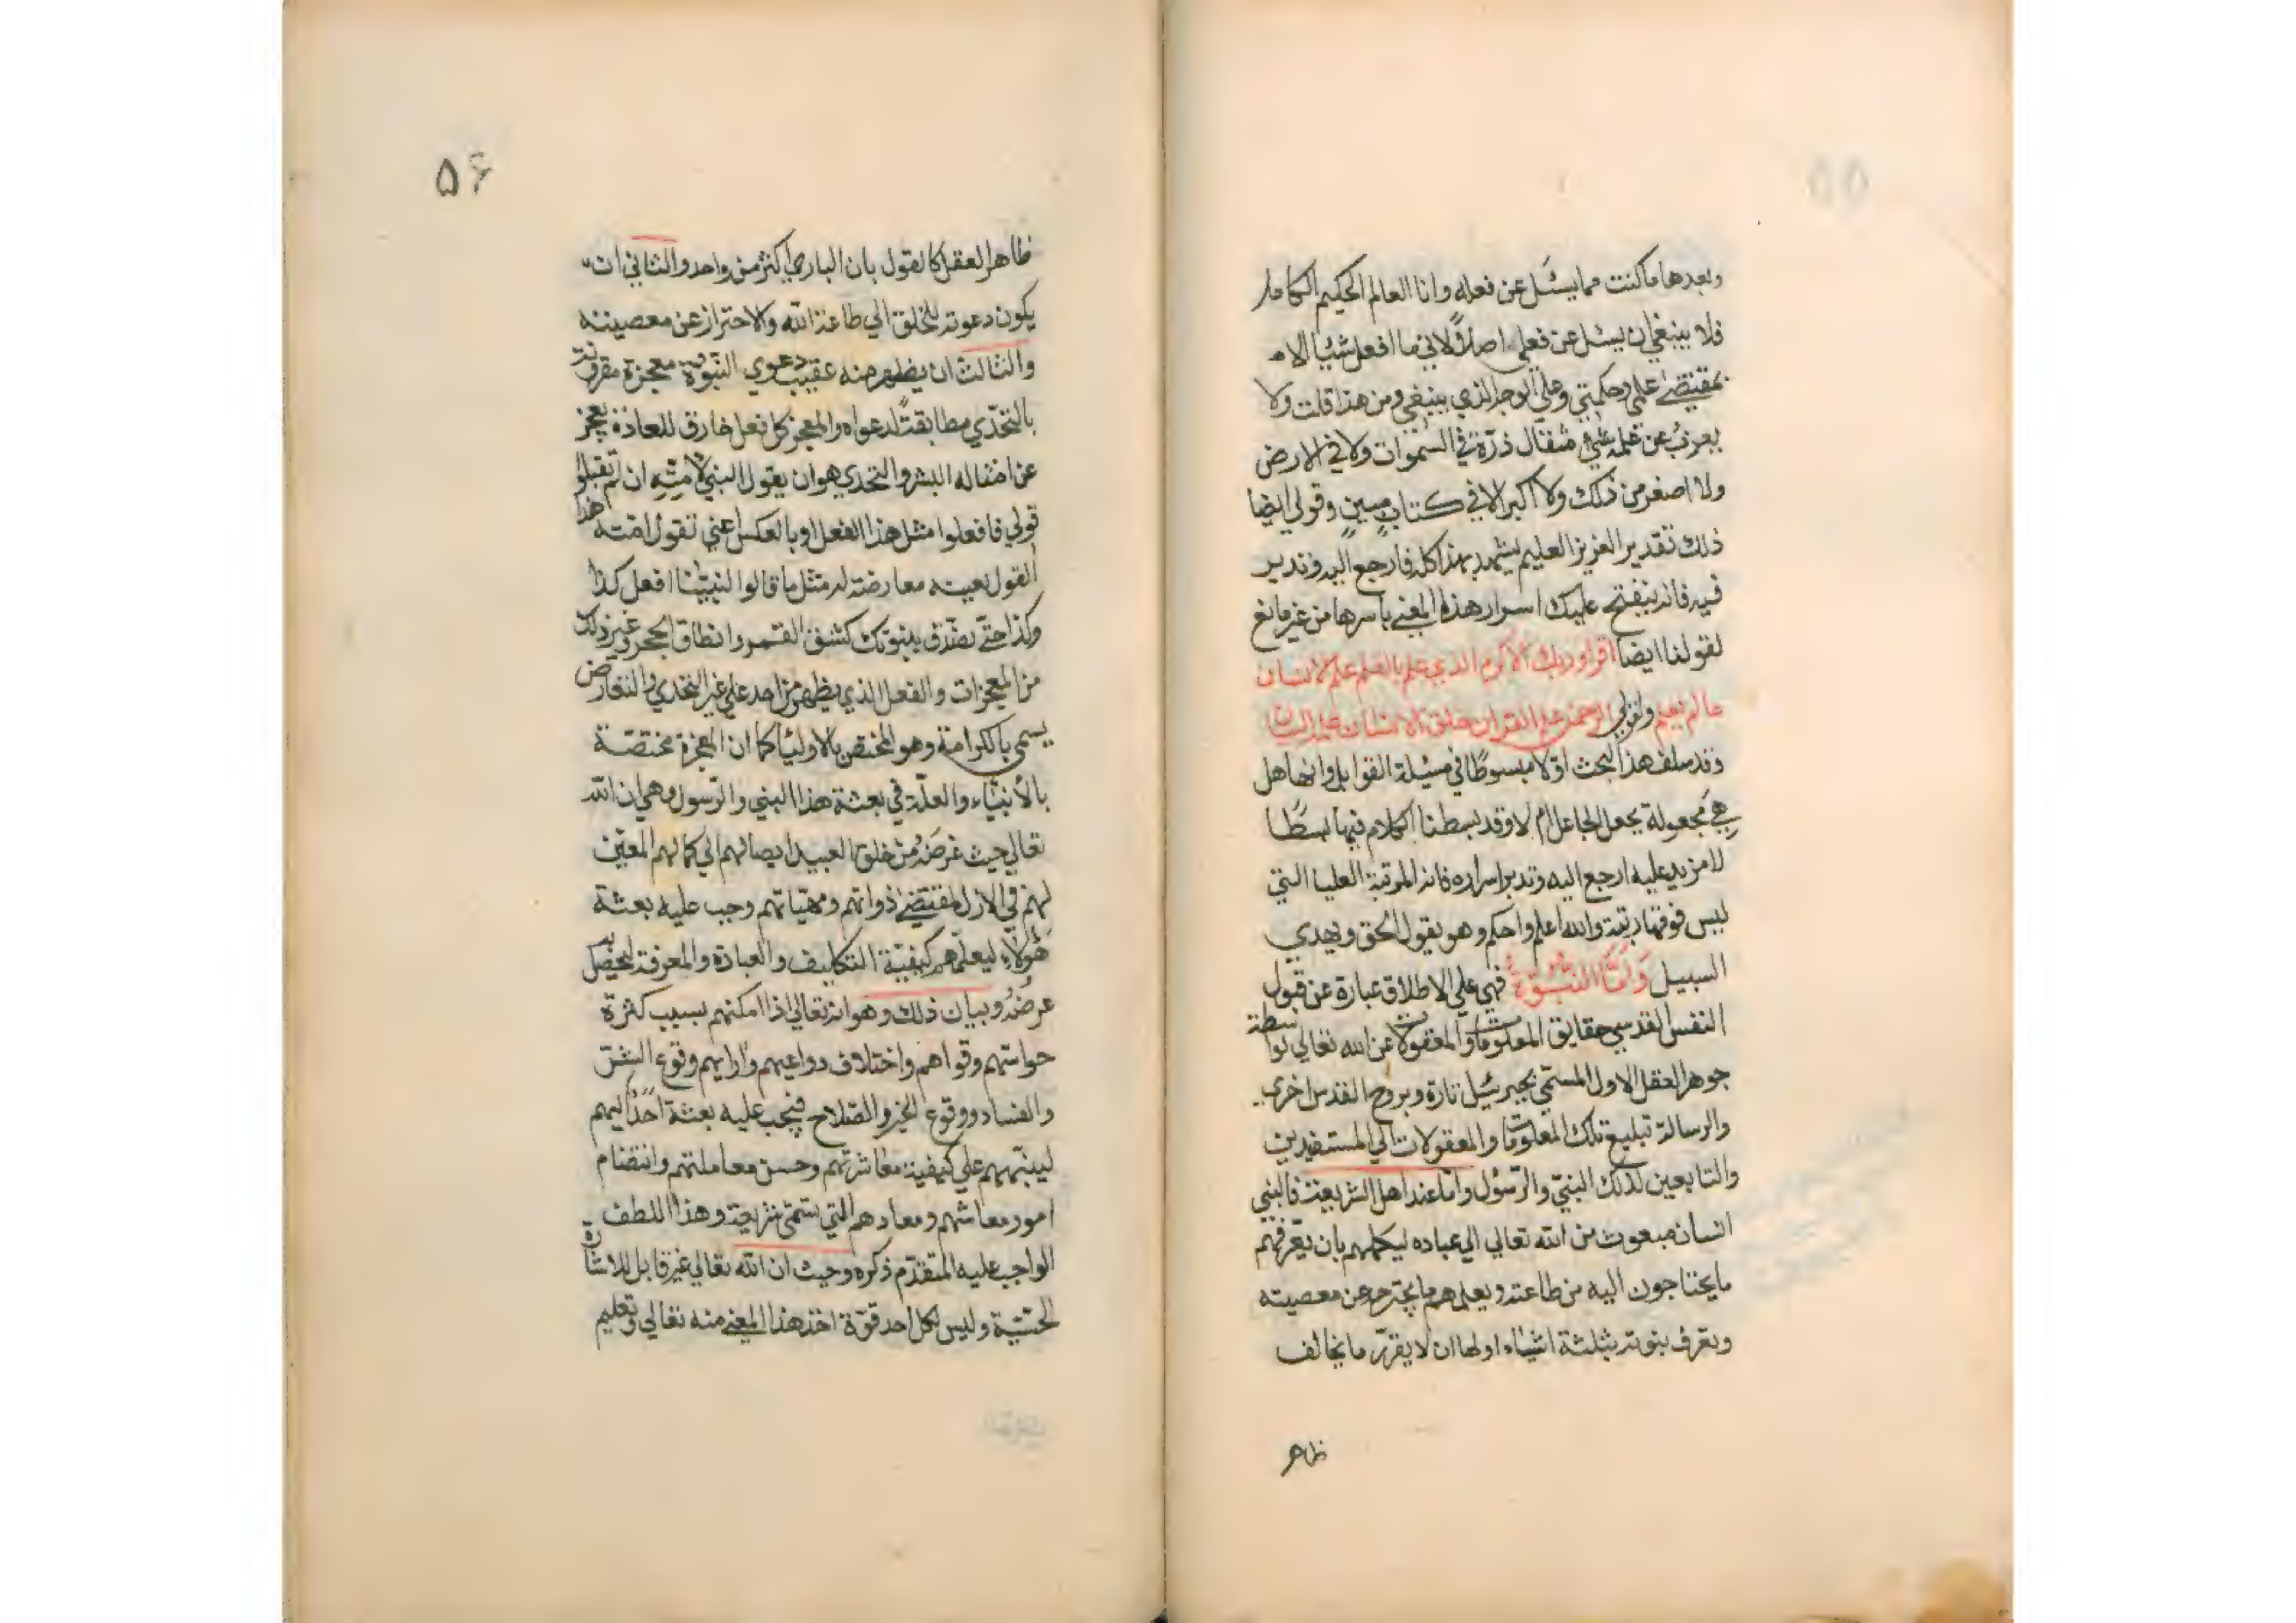 وبعدها ما كنت مما يسئل عن فعله وانا العالم الحكيم الكامل
فلا ينبغي ان يسئل عن فعلي اصلاً لاني ما افعل شيئا الا
بمقتضى علمي وحكمتي وعلى الوجه الذي ينبغي ومن هذا قلت ولا
يعزب عن علمه مثقال ذرّة في السموات ولا في الارض
ولا اصغر من ذلك ولا اكبر الا في كتاب مبين وقولي ايضا
ذلك تقدير العزيز العليم يشهد بهذا كله فارجع اليه وتدبر
فيه فانه ينفتح عليك اسرار هذا المعنى باسرها من غير مانع
لقولنا ايضا اقرا وربك الاكرم الذي علم بالقلم علم الانسان
ما لم يعلم ولقولي الرحمن علم القران خلق الانسان علمه البيان
وقد سلف هذا البحث اولا مبسوطًا في مسئلة القوابل وانها هل
هي مجعولة بجعل الجاعل ام لا وقد بسطنا الكلام فيها بسطًا
لا مزيد عليه ارجع اليه وتدبر اسراره فانه المرتبة العليا التي
ليس فوقها مرتبة والله اعلم واحكم وهو يقول الحق ويهدي
السبيل وَامّا النبوّة فهي على الاطلاق عبارة عن قبول
النفس القدسي حقايق المعلومات والمعقولات عن الله تعالى بواسطة
جوهر العقل الاول المسمّى بجبرئيل تارة وبروح القدس اخرى
والرسالة تبليغ تلك المعلومات والمعقولات الى المستفيدين
والتابعين لذلك النبيّ والرّسول وامّا عند اهل الشريعة فالنبي
انسان مبعوث من الله تعالى الى عباده ليكملهم بان يعرّفهم
ما يحتاجون اليه من طاعته ويعلمهم ما يحترز عن معصيته
ويعرف بنوته بثلثة اشياء اولها ان لا يقرّر ما يخالف
ظاهر
۵۶
ظاهر العقل كالقول بان الباري اكثر من واحد والثاني ان
يكون دعوته للخلق الى طاعة الله والاحتراز عن معصيته
والثالث ان يظهر منه عقيب دعوي النبوّة معجزة مقرونة
بالتحدّي مطابقةً لدعواه والمعجز كل فعل خارق للعادة يعجز
عن امثاله البشر والتحدي هو ان يقول النبي لامّته ان لم تقبلوا
قولي فافعلوا مثل هذا الفعل او بالعكس اعني تقول امّته هذا
القول بعينه معارضة له مثل ما قالوا لنبيّنا افعل كذا
وكذا حتّى نصّدق بنبوتك كشق القمر وانطاق الحجر وغير ذلك
من المعجزات والفعل الذي يظهر من احد على غير التحدي والتعارض
يسمى بالكرامة وهو المختص بالاوليا كما ان المعجزة مختصّة
بالأنبياء والعلّة في بعثة هذا النبي والرّسول وهي ان الله
تعالى حيث غرضه من خلق العبيد ايصالهم الى كمالهم المعيّن
لهم في الازل لمقتضى ذواتهم ومهيّاتهم وجب عليه بعثة
هؤلاء ليعلّمهم كيفيّة التكاليف والعبادة والمعرفة ليحصل به
غرضه وبيان ذلك وهو انه تعالى اذا امكنهم بسبب كثرة
حواسّهم وقواهم واختلاف دواعيهم وارايهم وقوع الشرّ
والفساد ووقوع الخير والصّلاح فيجب عليه بعثة احدٍ اليهم
لينبّههم على كيفيّة معاشرتهم وحسن معاملتهم وانتضام
امور معاشهم ومعادهم التي يسمّى شريعة وهذا اللطف
الواجب عليه المتقدّم ذكره وحيث ان الله تعالى غير قابل للاشارة
الحسّيّة وليس لكل احد قوّة اخذ هذا المعنى منه تعالى وتعليم